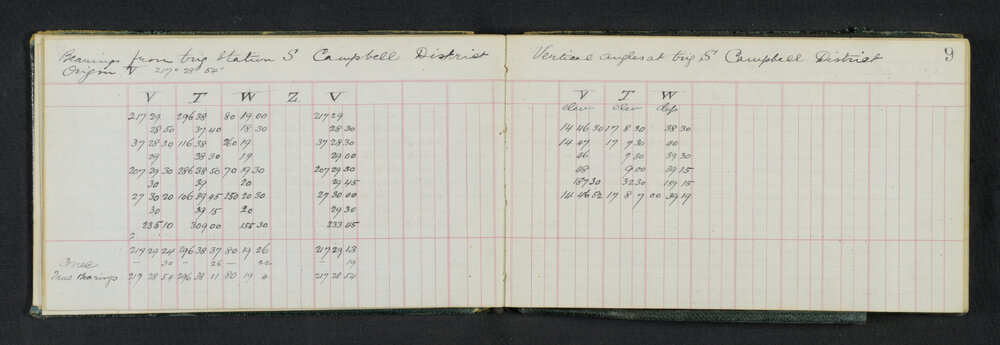 Bearings from trig Station S Campbell District
Origin V 217° 28' 54"
V T W Z V
217 29 296 38 80 19 00 217 29
28 50 37 40 18 30 28 30
37 28 30 116 38 260 19 37 28 30
29 38 30 19 29 00
207 29 30 286 38 50 70 19 30 207 29 30
30 39 20 29 45
27 30 20 106 39 45 250 20 30 27 30 00
30 39 15 20 29 30
235 10 309 00 155 30 233 45
2
217 29 24 296 38 37 80 19 26 217 29 13
Correc — 30 — 26 — 22 19
True Bearings 217 28 54 296 38 11 80 19 4 217 28 54
Vertical angles at trig S Campbell District
9
V T W
elev elev dep
14 46 30 17 8 30 38 30
14 47 17 7 30 40
46 7 30 39 30
48 9 00 39 15
187 30 32 30 157 15
14 46 52 17 8 7 00 39 19